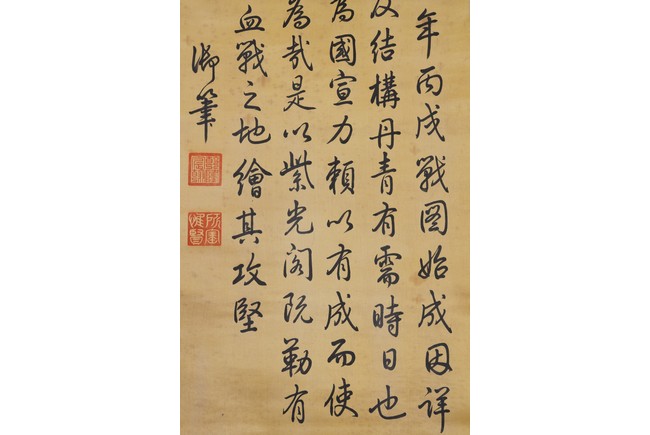 年丙戌戰圖始成因詳
及結構丹青有需時日也
為國宣力賴以有成而使
為哉是以紫光閣既勒有
血戰之地繪其攻堅
御筆
所寶惟賢